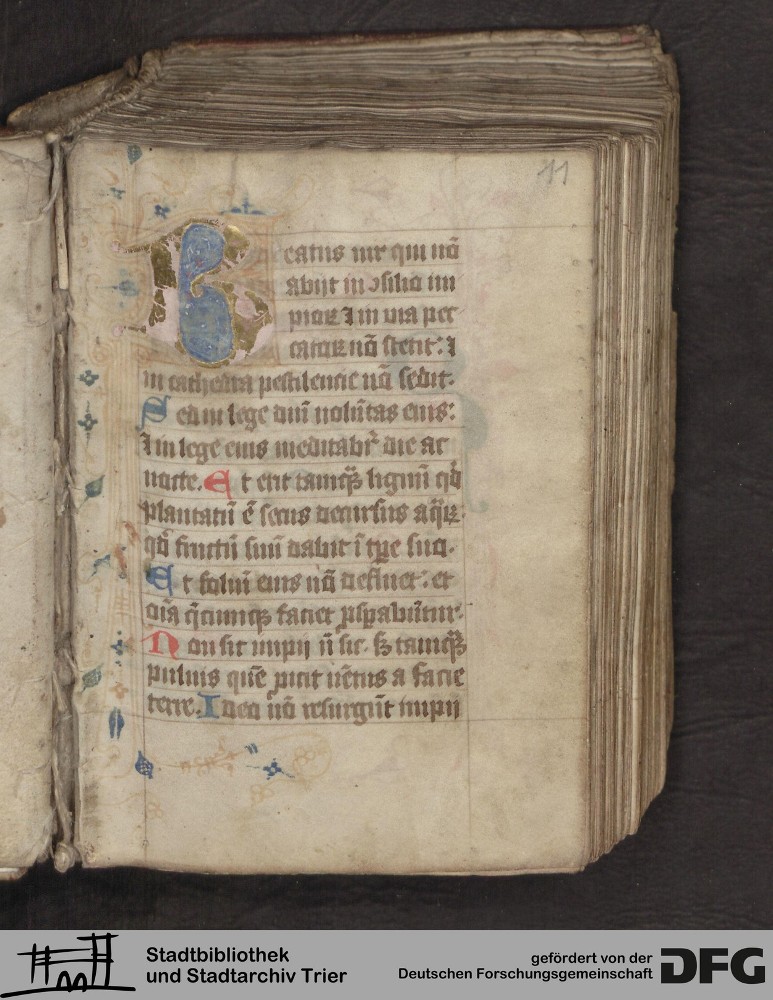 11
B catus uir qui nō
abijt in ↄsilio im
pioꝝ ⁊ in uia pec
catoꝝ nō stetit: ⁊
in cathedra pestilencie nō sedit.
Sed in lege dnī uolūtas eius:
⁊ in lege eius meditabr̄ die ac
nocte. Et erit tamqꝫ lignū qd̓
plantatū ē secus decursus aq̄ꝝ.
qd̓ fructū suū dabit ī tpꝛe suo.
Et foliū eius nō defluet: et
oīa q̄cumqꝫ faciet ꝓsꝑabūtur.
Non sic impij nō sic. sꝫ tamqꝫ
puluis quē ꝓicit uētus a facie
terre. Ideo nō resurgūt impij
Stadtbibliothek
und Stadtarchiv Trier
gefördert von der
Deutschen Forschungsgemeinschaft
DFG